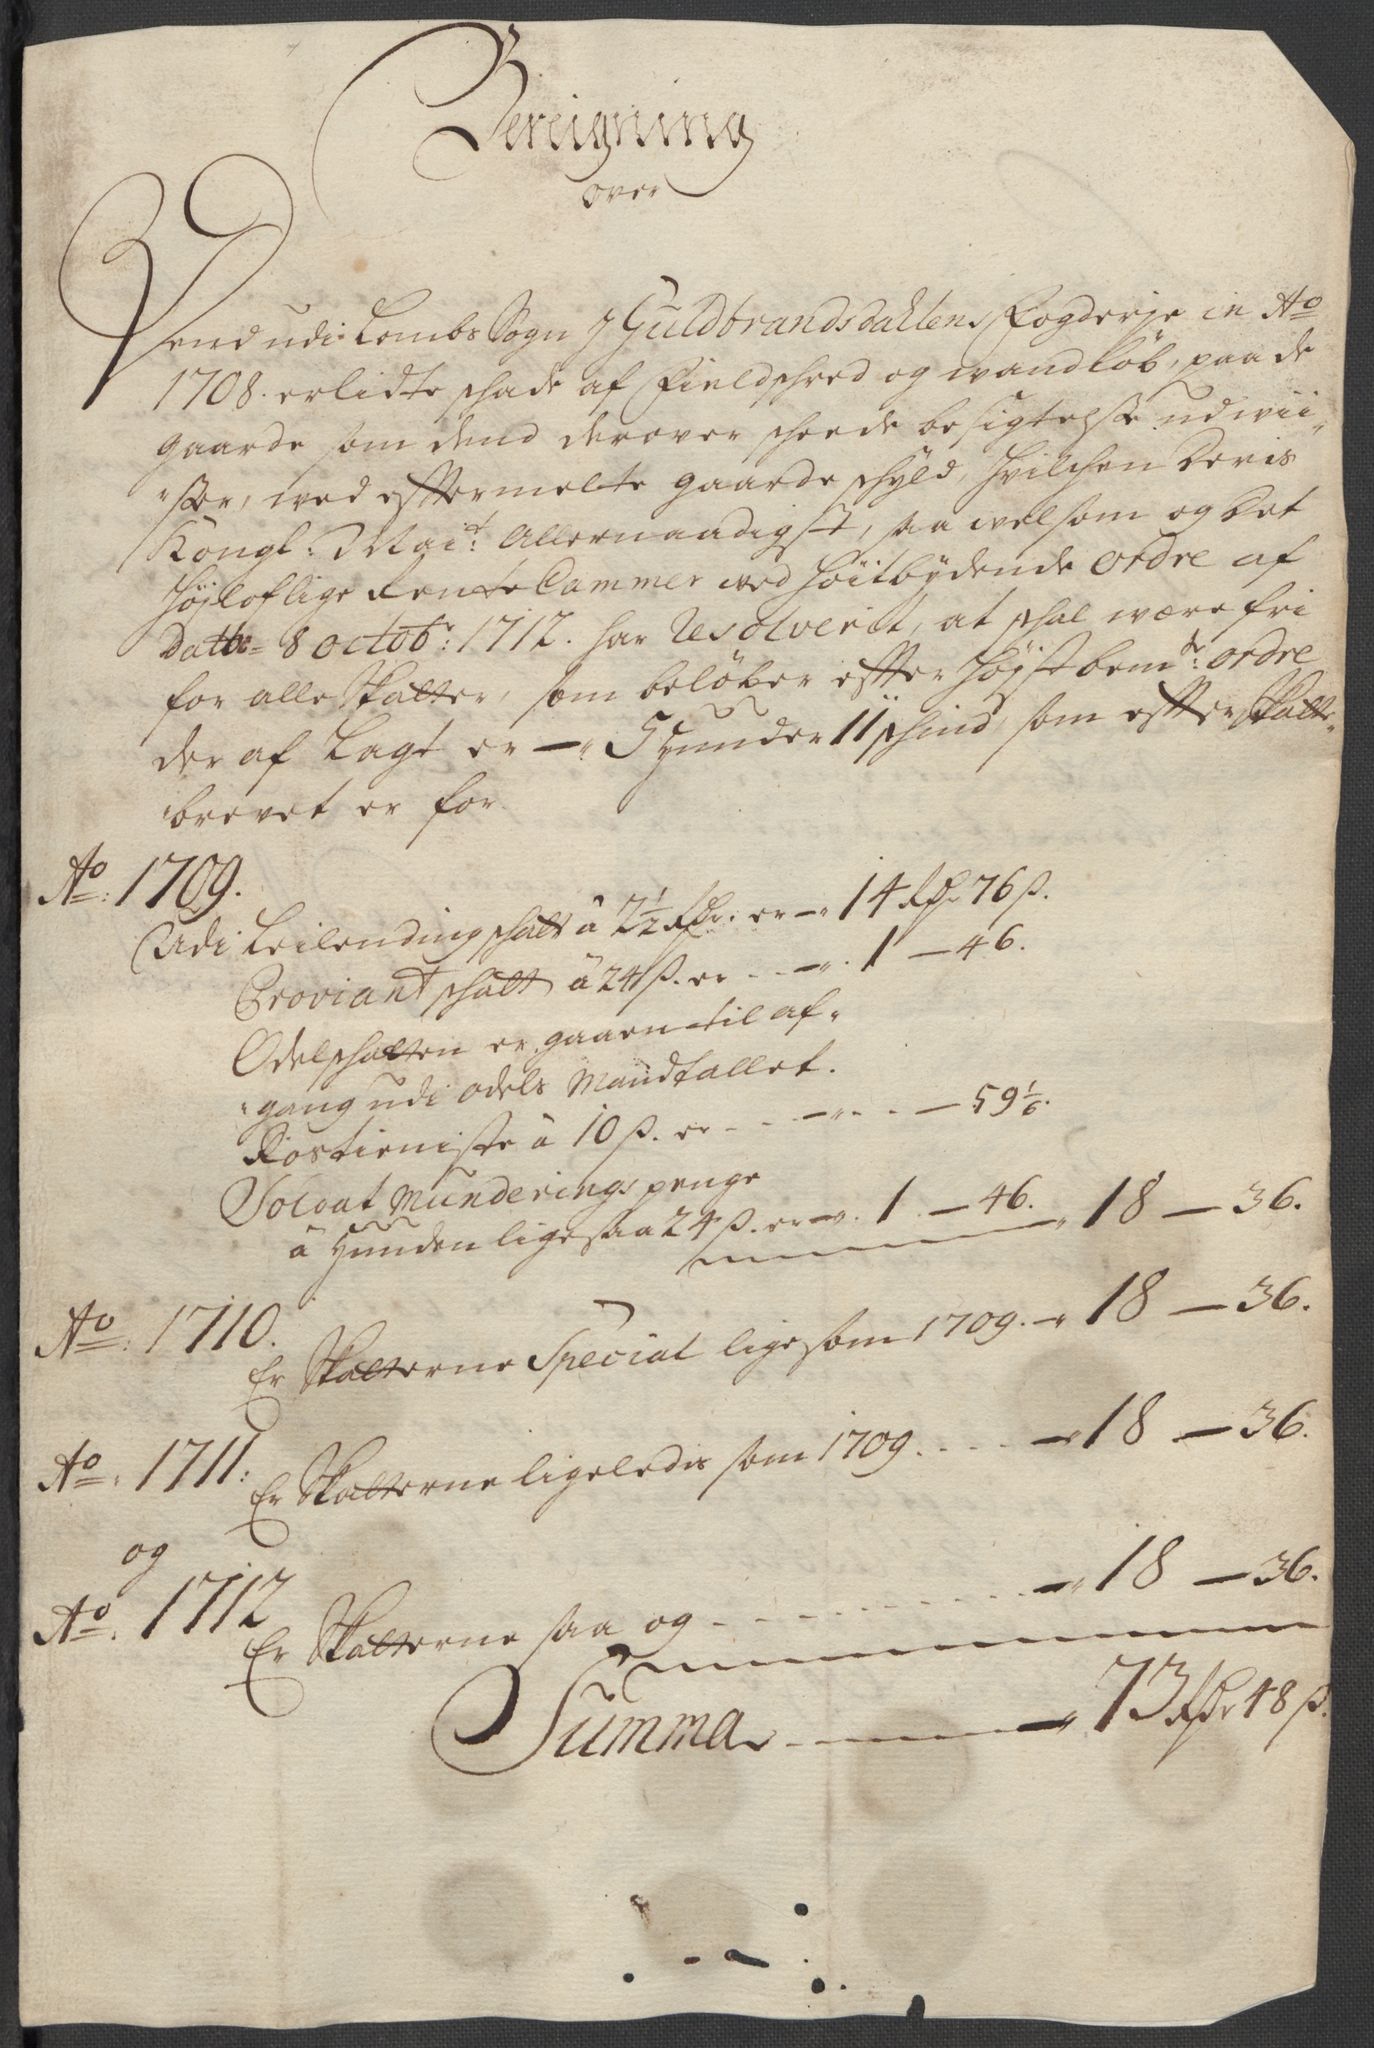 Bereigning
over
Dend udi Lombs Sogn J Guldbrandsdallens Fogderje in Ao
1708. erlidte schade af Fieldschred og wandløb, paa de
gaarde som dend derover scheede besigtelsse udwii-
sser, wed eftermelte gaarde schyld, hvilchen Deris
Kongl: Mai:t Allernaadigst, saa vel som og Det
Højloflige Rente Cammer wed Høitbydende Ordre af
Dato 8 octobr: 1712. har Resolverit, at schal være fri
for alle Skatter, som beløber efter Højstbemte: Ordre
der af Lagt er - 5 Hunder 11 schind, som efter Skatte-
brevet er for
Ao: 1709.
Udi Leilending schatt â 2½ Rdr: er - 14 Rdr 76 ß.
Proviant schatt â 24 ß. er - 1 - 46.
Odelschatten er gaaen til af-
gang udi odels Mandtallet.
Rostieniste â 10 ß. er - - 59 1/6.
Soldat Munderings penge
â Hunden ligesaa 24 ß. er - 1 - 46. 18 - 36.
Ao: 1710.
Er Skatterne Special ligesom 1709. - 18 - 36.
Ao: 1711:
Er Skatterne ligeledis som 1709 - 18 - 36.
og
Ao: 1712
Er Skatterne saa og - 18 - 36.
Summa - 73 Rdr 48 ß.